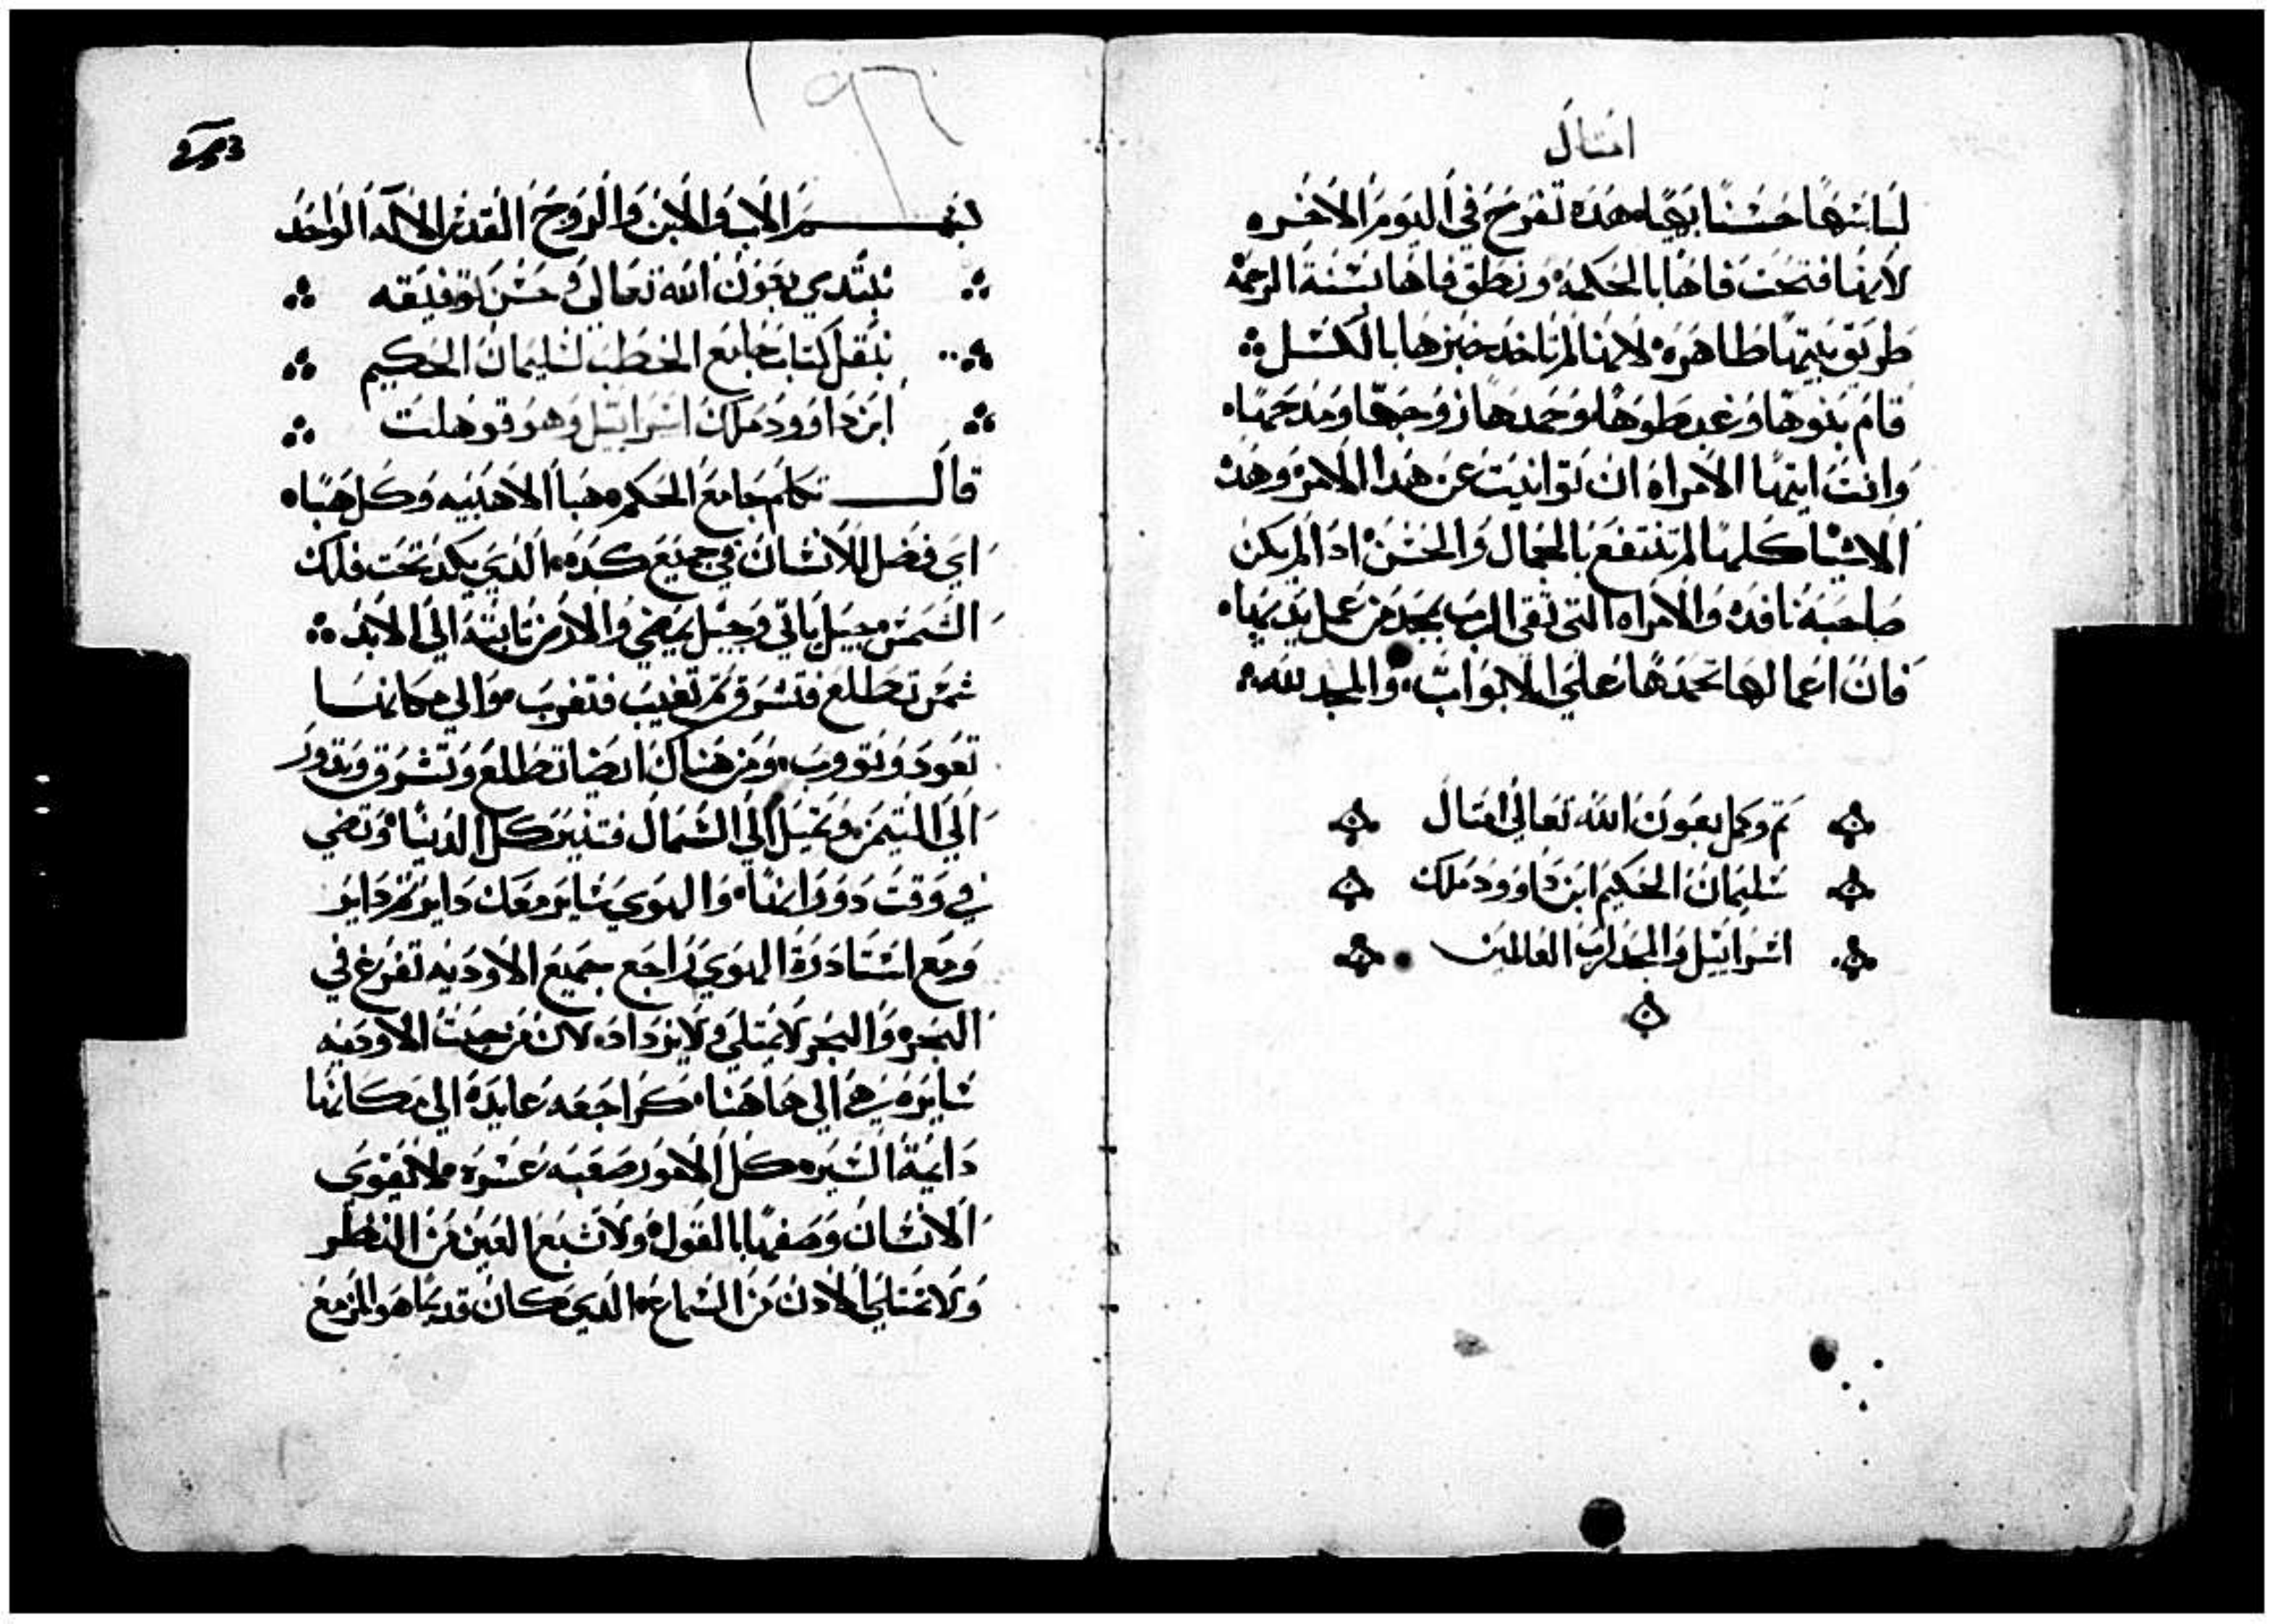 امثال
لباسها حسنا بهيا هده تفرح في اليوم الاخره
لانها فتحت فاها بالحكمه ونطق فاها بسنة الرحمة
طريق بيتها طاهره لانها لم تاخد خبزها بالكسل
قام بنوها وغبطوها وحمدها زوجها ومدحها
وانت ايتها الامراه ان توانيت عن هدا الامر وهده
الاشيا كلها لم تنتفع بالجمال والحسن ادا لم يكن
صاحبه نافده والامراه التي تقي الرب بجد من عمل يديها
فان اعمالها تحمدها علي الابواب والمجد لله
تم وكمل بعون الله تعالي امتال
سليمان الحكيم ابن داوود ملك
اسراييل والمجد لرب العالمين
١٩٦
بسم الاب والابن والروح القدس الاله الواحد
نبتدي بعون الله تعالي وحسن توفيقه
بنقل كتاب جامع الخطب لسليمان الحكيم
ابن داوود ملك اسراييل وهو قوهلت
قال تكلم جامع الحكم هبا الاهبيه وكل هبا
اي فضل للانسان في جميع كده الدي يكد تحت فلك
الشمس جيل ياتي وجيل يمضي والارض تابتة الي الابد
شمس تطلع فتشرق تم تغيب فتغرب والي مكانها
تعود وتووب ومن هناك ايضا تطلع وتشرق وتدور
الي التيمن وتميل الي الشمال فتنير كل الدنيا وتضي
في وقت دورانها والهوي ساير معك داير تم داير
ومع استدارة الهوي راجع جميع الاوديه تفرغ في
البحر والبحر لا يمتلي ولا يزداد لان من حيت الاوديه
سايره هي الي هاهنا كراجعه عايدة الي مكانها
دايمة السيره كل الامور صعبه عسره لا يقوي
الانسان وصفها بالقول ولا تشبع العين من النظر
ولا تمتلي الادن من السماع الدي كان قديما هو المزمع